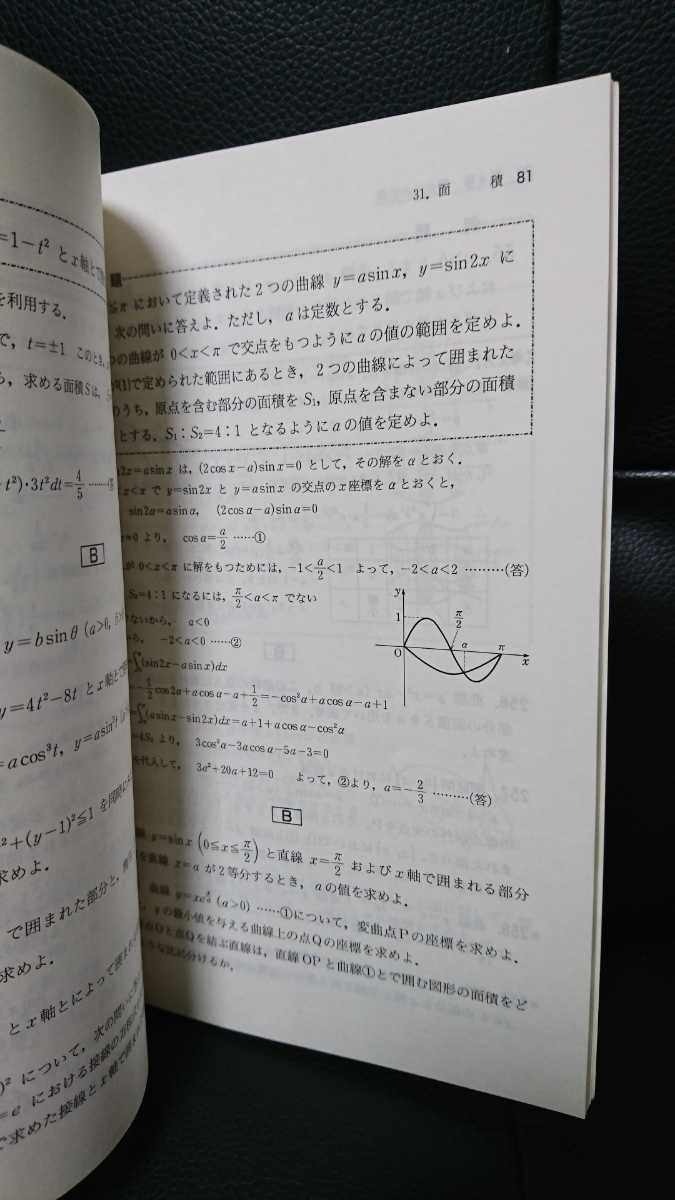 =1−t² とx軸と
を利用する.
で, t=±1 このとき,
ら, 求める面積Sは,
t²)・3t²dt=4/5 ……(答)
B
y=b sinθ (a>0, b>
y=4t²−8t とx軸と
=a cos³t, y=a sin³t
²+(y−1)²≦1 を
求めよ.
で囲まれた部分と,
求めよ.
とx軸とによって囲まれ
)² について, 次の問い
=e における接線の方程式
で求めた接線とx軸で囲
31. 面 積 81
題
≦π において定義された2つの曲線 y=a sin x, y=sin 2x に
次の問いに答えよ. ただし, aは定数とする.
つの曲線が 0<x<π で交点をもつようにaの値の範囲を定めよ.
(1)で定められた範囲にあるとき, 2つの曲線によって囲まれた
のうち, 原点を含む部分の面積を S₁, 原点を含まない部分の面積
とする. S₁:S₂=4:1 となるようにaの値を定めよ.
2x=a sin x は, (2cos x−a)sin x=0 として, その解をαとおく.
x<π で y=sin 2x と y=a sin x の交点のx座標をαとおくと,
sin 2α=a sin α, (2cos α−a)sin α=0
≠0 より, cos α=a/2 ……①
が 0<x<π に解をもつためには, −1<a/2<1 よって, −2<a<2 ………(答)
S₂=4:1 になるには, π/2<α<π でない
ないから, a<0
ら, −2<a<0 ……②
=∫(sin 2x−a sin x)dx
−1/2 cos 2α+a cos α−a+1/2=−cos²α+a cos α−a+1
=∫(a sin x−sin 2x)dx=a+1+a cos α−cos²α
=4S₂ より, 3cos²α−3a cos α−5a−3=0
を代入して, 3a²+20a+12=0 よって, ②より, a=−2/3 ………(答)
y
1
O
π/2
α
π
x
B
線 y=sin x (0≦x≦π/2) と直線 x=π/2 およびx軸で囲まれる部分
を直線 x=a が2等分するとき, aの値を求めよ.
曲線 (a>0) ……①について, 変曲点Pの座標を求めよ.
yの最小値を与える曲線上の点Qの座標を求めよ.
点Oと点Qを結ぶ直線は, 直線OPと曲線①とで囲む図形の面積をど
うな比に分けるか.